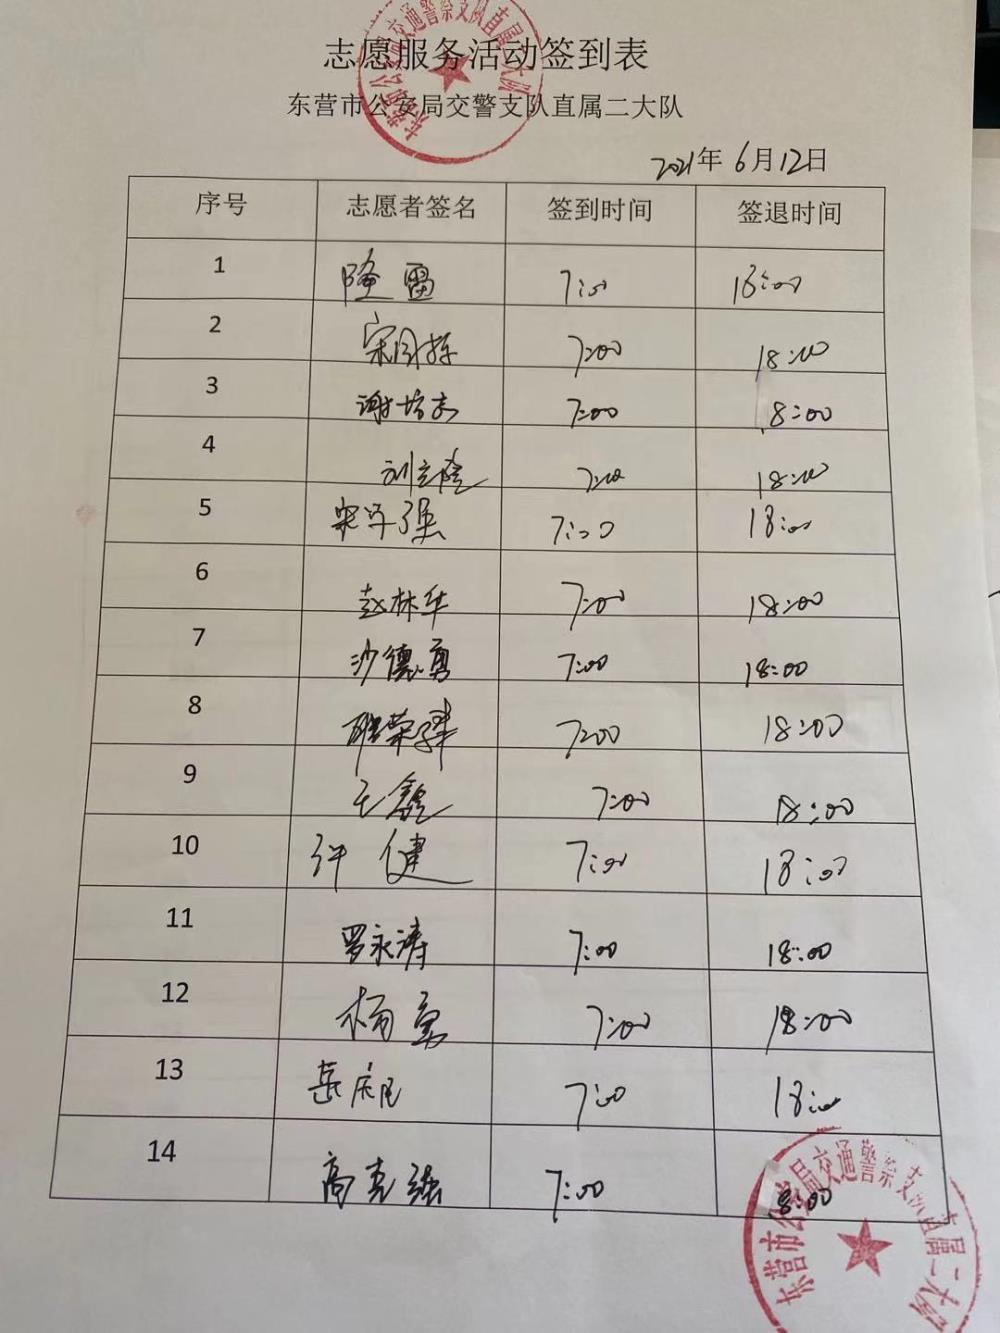 志愿服务活动签到表
东营市公安局交警支队直属二大队
2021年 6月12日
序号 志愿者签名 签到时间 签退时间
1 隆雷 7:00 18:00
2 7:00 18:00
3 谢培志 7:00 18:00
4 刘立隆 7:00 18:00
5 7:00 18:00
6 赵林华 7:00 18:00
7 沙德勇 7:00 18:00
8 7:00 18:00
9 王鑫 7:00 18:00
10 许健 7:00 18:00
11 罗永涛 7:00 18:00
12 杨勇 7:00 18:00
13 7:00 18:00
14 高克强 7:00 18:00
东营市公安局交通警察支队直属二大队
东营市公安局交通警察支队直属二大队